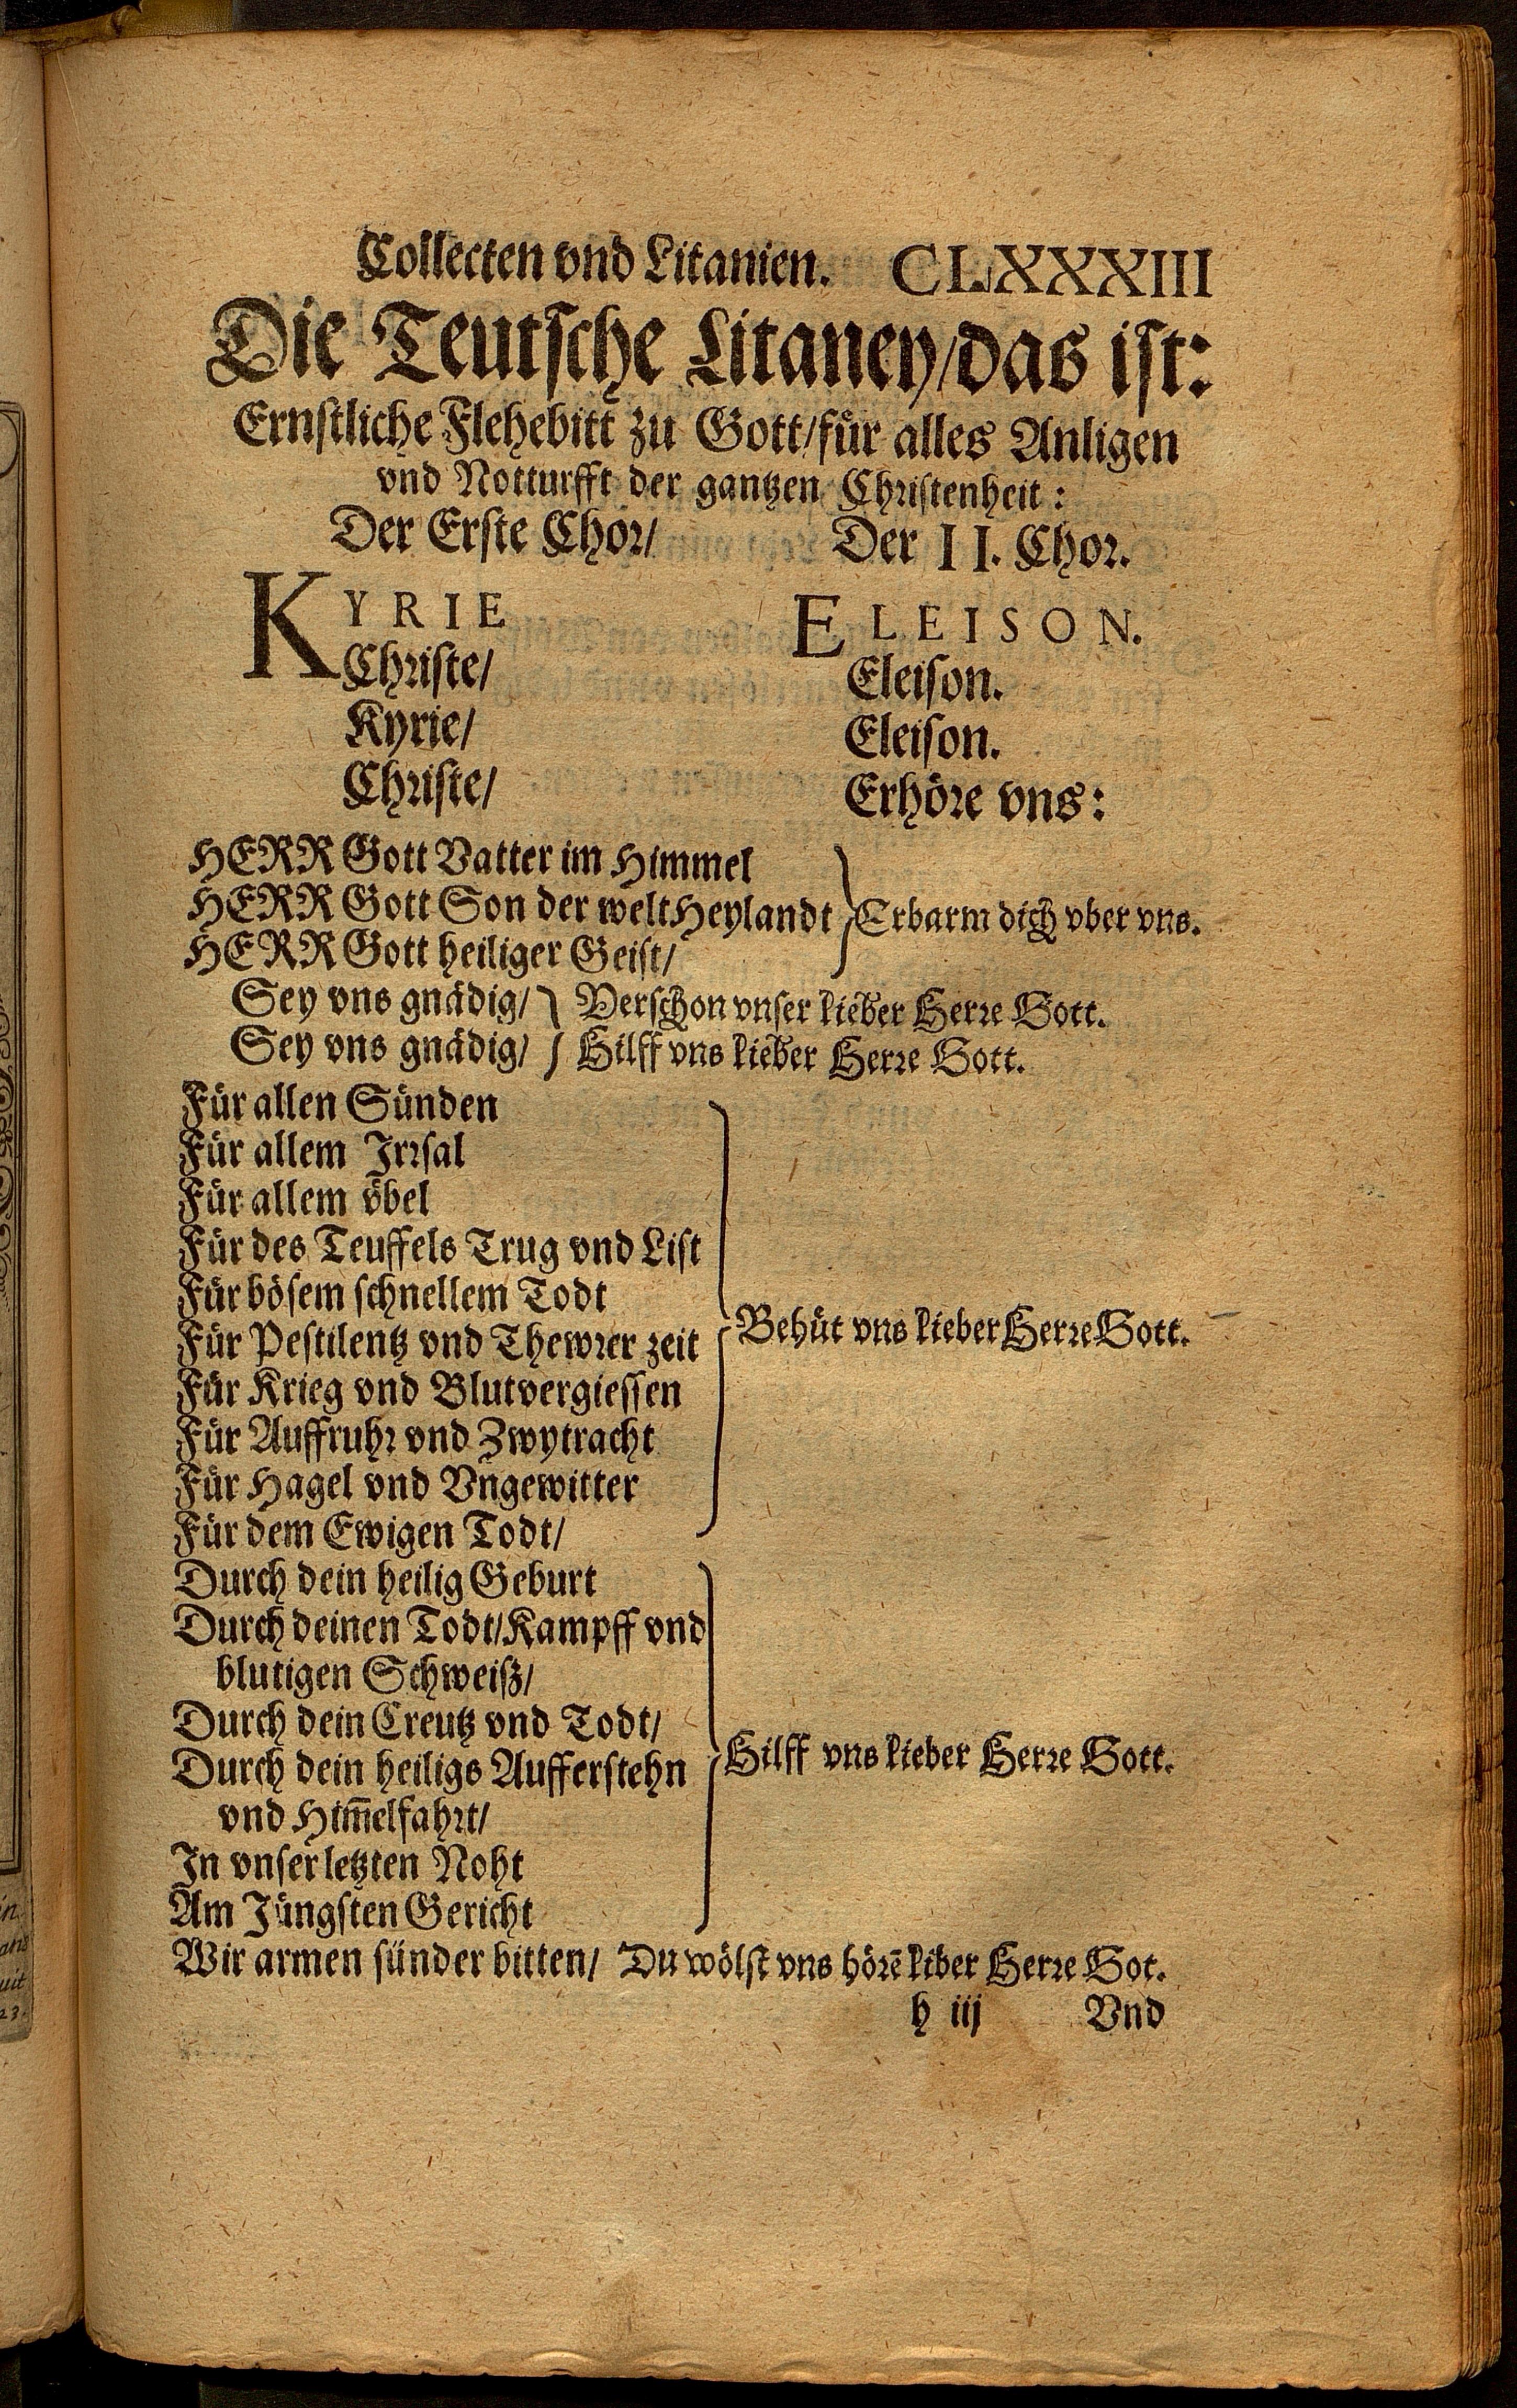 Collecten vnd Litanien. CLXXXIII
Die Teutsche Litaney/das ist:
Ernstliche Flehebitt zu Gott/für alles Anligen
vnd Notturfft der gantzen Christenheit:
Der Erste Chor/ Der II. Chor.
KYRIE ELEISON.
Christe/ Eleison.
Kyrie/ Eleison.
Christe/ Erhöre vns:
HERR Gott Vatter im Himmel
HERR Gott Son der welt Heylandt Erbarm dich vber vns.
HERR Gott heiliger Geist/
Sey vns gnädig/ Verschon vnser lieber Herre Gott.
Sey vns gnädig/ Hilff vns lieber Herre Gott.
Für allen Sünden
Für allem Irrsal
Für allem vbel
Für des Teuffels Trug vnd List
Für bösem schnellem Todt
Für Pestilentz vnd Thewrer zeit Behüt vns lieber Herre Gott.
Für Krieg vnd Blutvergiessen
Für Auffruhr vnd Zwytracht
Für Hagel vnd Vngewitter
Für dem Ewigen Todt/
Durch dein heilig Geburt
Durch deinen Todt/Kampff vnd
blutigen Schweiß/
Durch dein Creutz vnd Todt/
Durch dein heiligs Aufferstehn Hilff vns lieber Herre Gott.
vnd Him̄elfahrt/
In vnser letzten Noht
Am Jüngsten Gericht
Wir armen sünder bitten/ Du wölst vns hörē liber Herre Got.
h iij Vnd